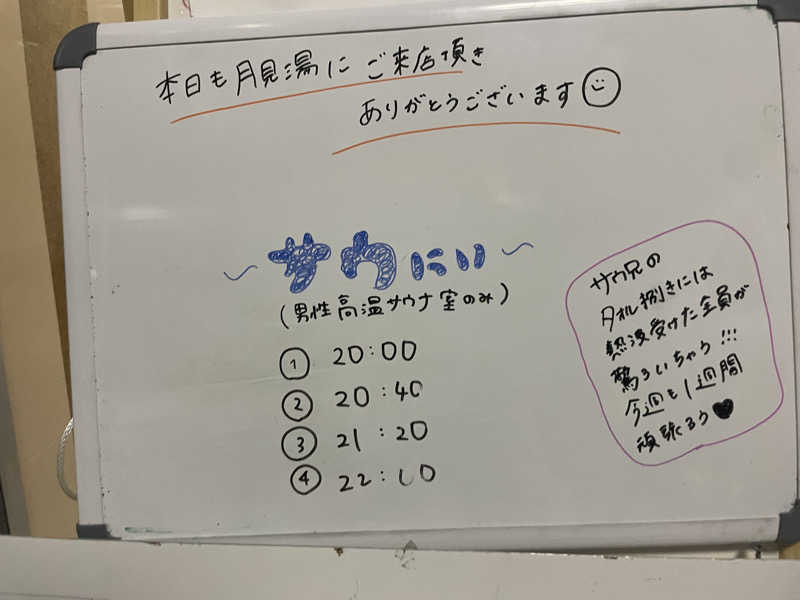 本日も月見湯に ご来店頂き
ありがとうございます
～サウにい～
(男性高温サウナ室のみ)
① 20:00
② 20:40
③ 21:20
④ 22:00
サウ兄の
タオル捌きには
熱波受けた全員が
驚ろいちゃう!!!
今週も1週間
頑張ろう♥